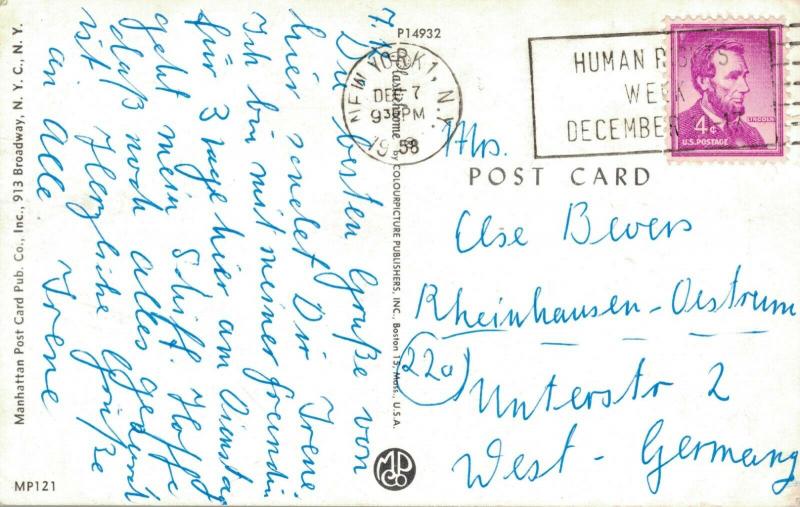 Manhattan Post Card Pub. Co., Inc., 913 Broadway, N. Y. C., N. Y.
MP121
7. 12.
Die besten Grüße von
hier sendet Dir Irene.
Ich bin mit meiner Freundin
für 3 Tage hier am Dienstag
geht mein Schiff. Hoffe
daß noch alles gesund
ist. Herzliche Grüße
an Alle Irene
P14932
Plastichrome by COLOURPICTURE PUBLISHERS, INC., Boston 15, Mass., U.S.A.
NEW YORK 1, N.Y.
DEC 7
930PM
1958
HUMAN RIGHTS
WEEK
DECEMBER
LINCOLN
4¢
U.S. POSTAGE
POST CARD
Mrs.
Else Bevers
Rheinhausen-Oestrum
(22a)
Unterstr 2
West-Germany
MPCO